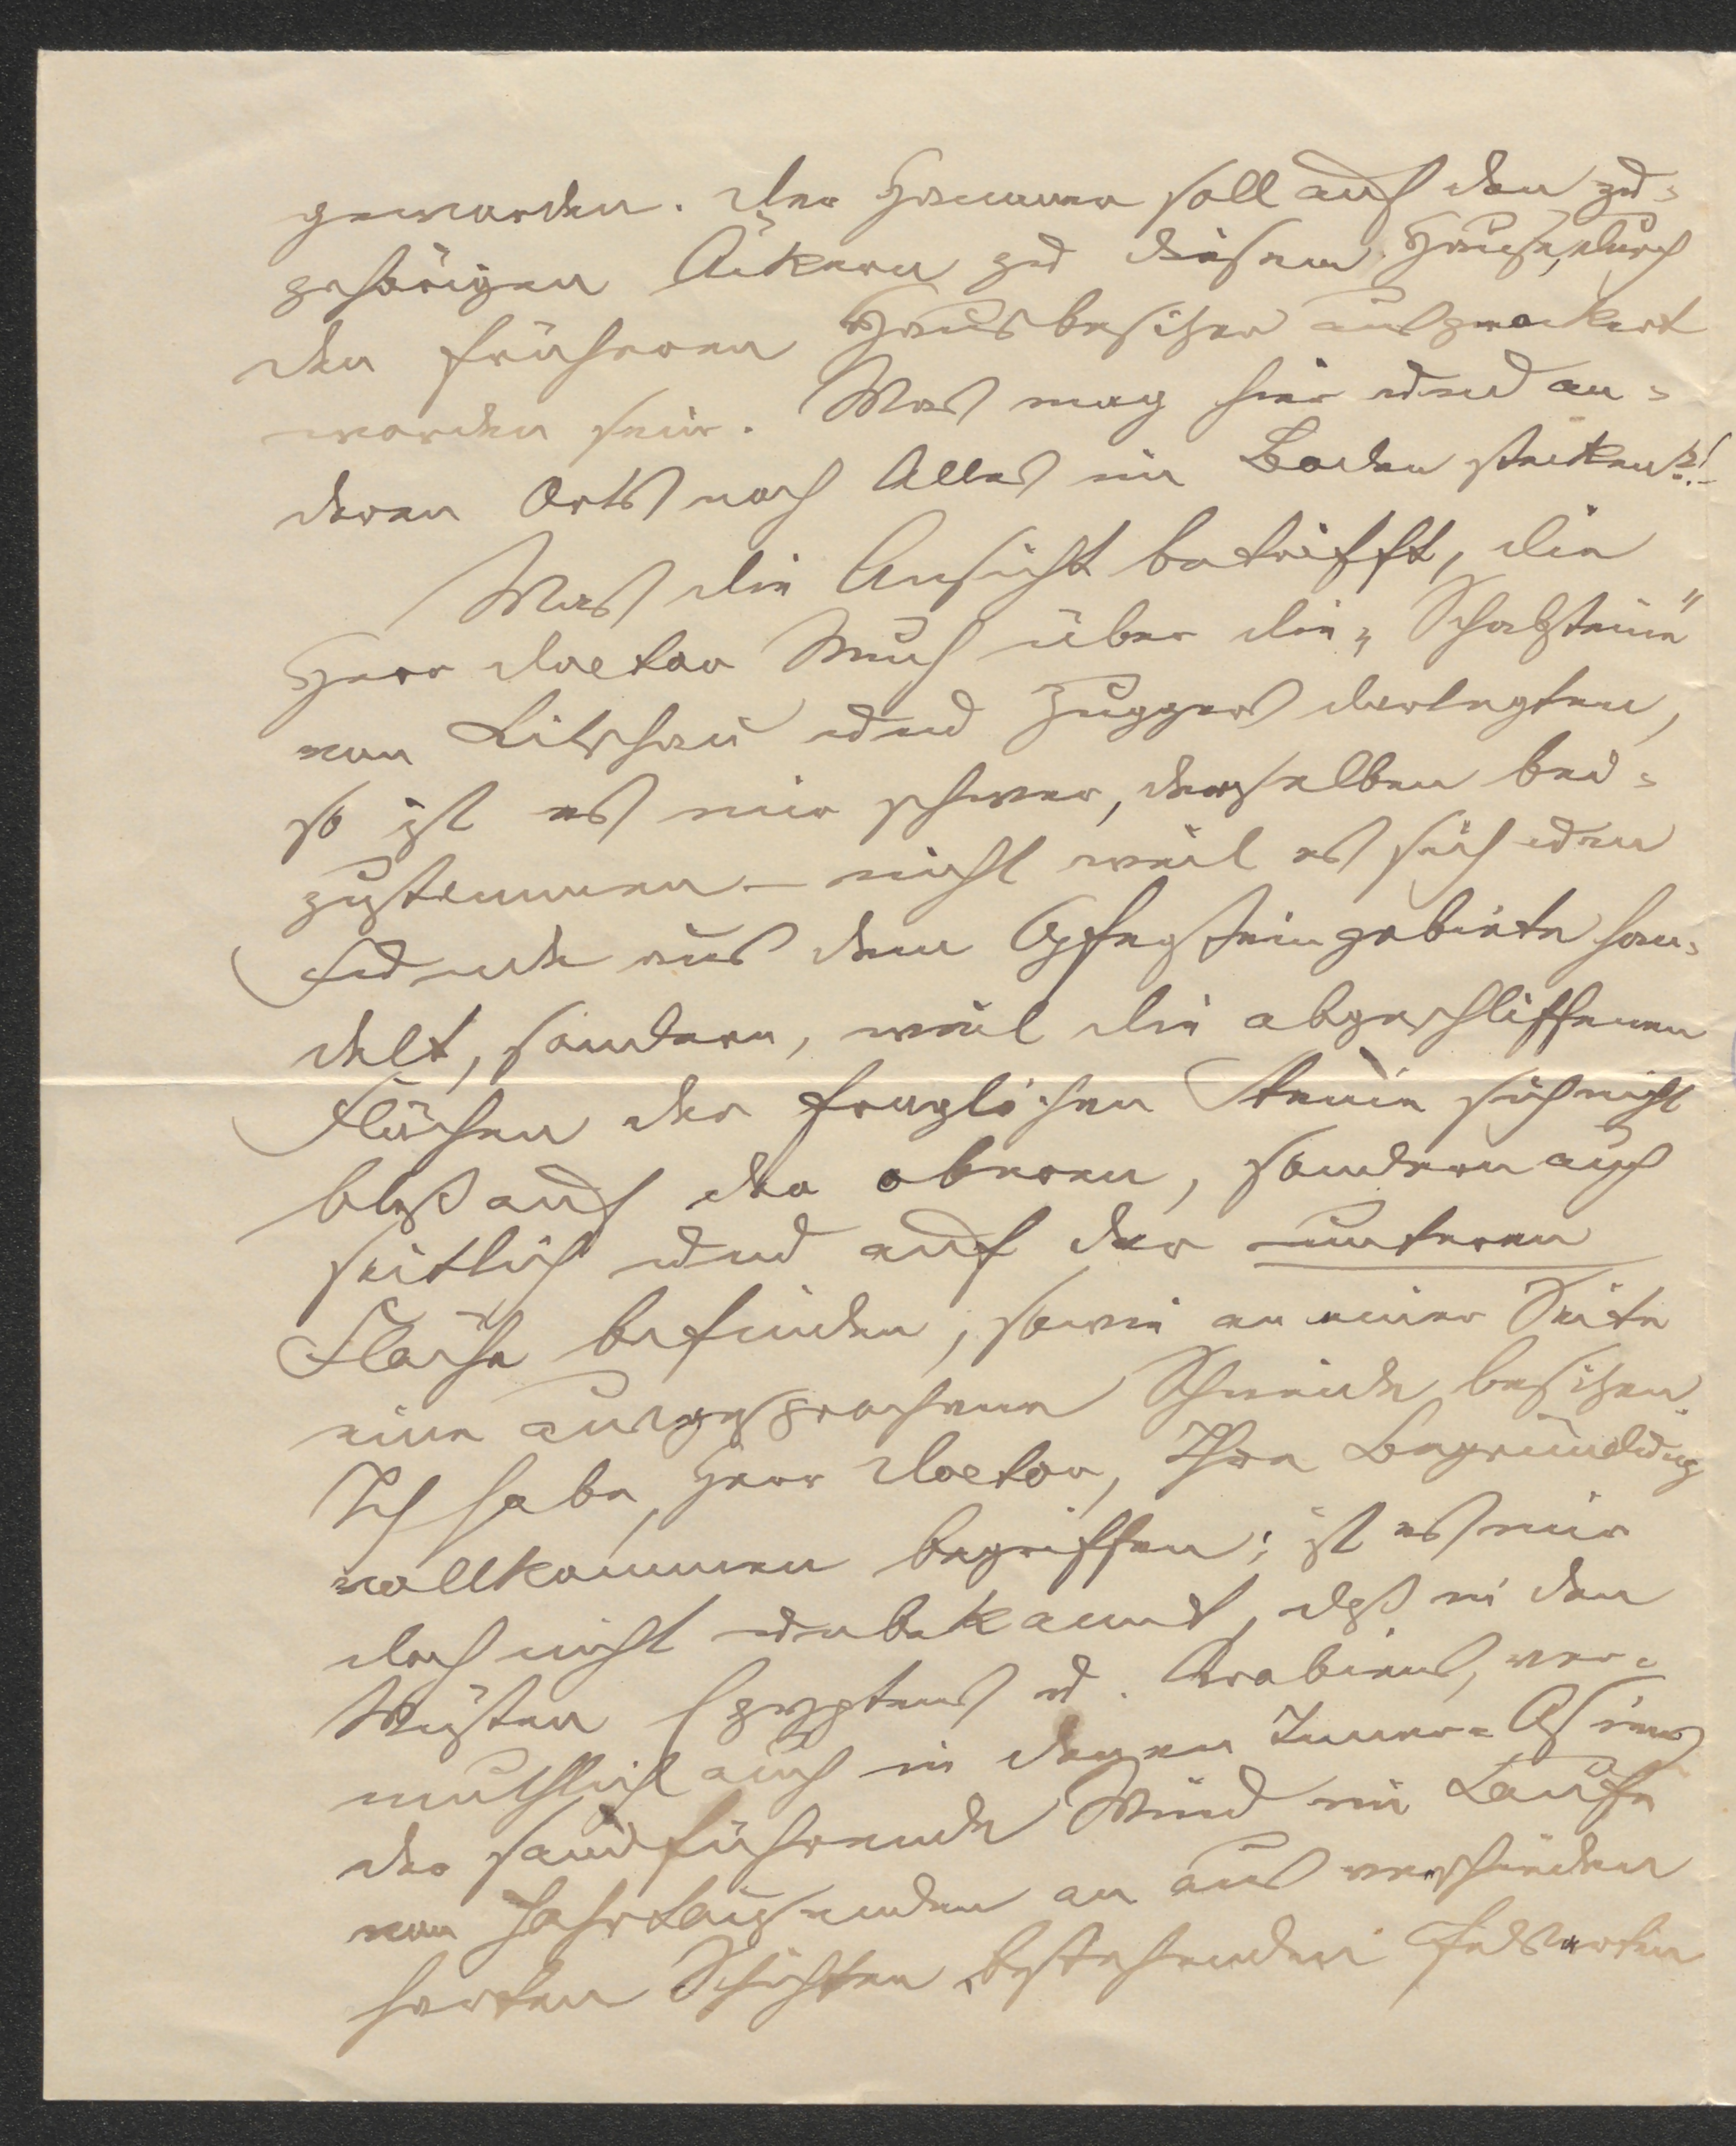 geworden. Der Hammer soll auf den zu=
gehörigen Äckern zu diesem Hause, durch
den früheren Hausbesitzer ausgeackert
worden sein. Was mag hier und an=
deren Orts noch Alles im Boden stecken?!
Was die Ansicht betrifft, die
Herr Doctor Much über die „Schabsteine"
von Litschau und Zuggers darlegten,
so ist es mir schwer, derselben bei=
zustimmen – nicht weil es sich um
Funde aus dem gebiete han=
delt, sondern, weil die abgeschliffenen
Flächen der fraglichen Steine sich nicht
bloß auf der oberen, sondern auch
seitlich und auf der unteren
Fläche befinden, sowie an einer Seite
eine ausgesprochene Schneide besitzen.
Ich habe, Herr Doctor, Ihre Begründung
vollkommen begriffen; ist es mir
doch nicht unbekannt, daß in den
Wüsten Egyptens u. Arabiens, ver=
muthlich auch in denen Inner=Asiens
der sandführende Wind im Laufe
von Jahrtausenden an aus verschieden
harten Schichten bestehenden Felsarten